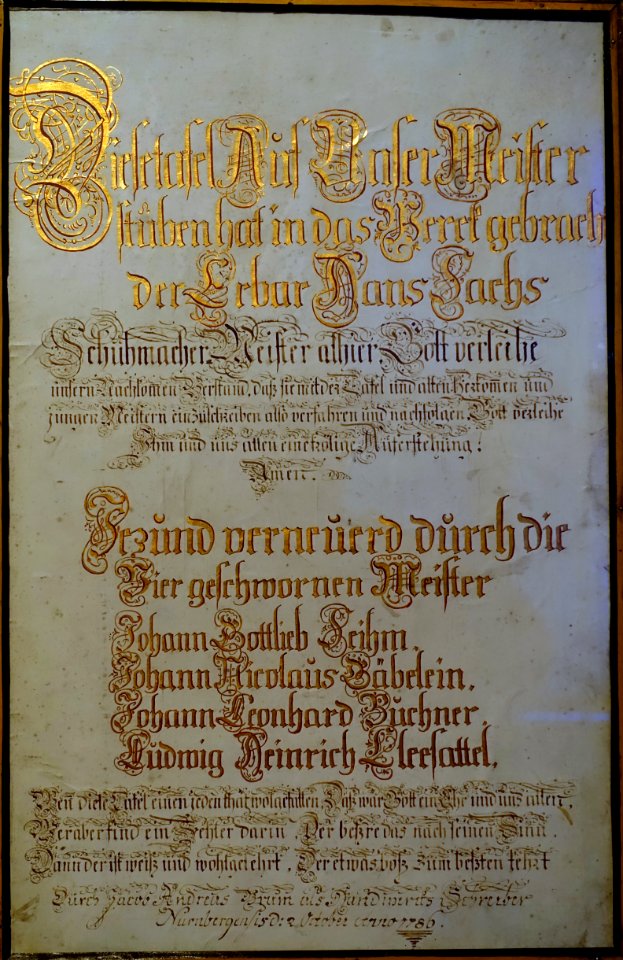 Diese tafel Auf Unser Meister
stüben hat in das Werck gebrach
der Erbar Hans Sachs
Schühmacher Meister alhier Gott verleihe
unsern Nachkomen Verstand, daß sie mit der Tafel und alten herkomen und
jungen Meistern einzuschreiben also verfahren und nachfolgen Gott verleihe
Ihm und uns allen eine frölige Auferstehung!
Amen.
Jezund verneuerd dürch die
Vier geschwornen Meister
Johann Gottlieb Leihm.
Johann Nicolaus Bäbelein.
Johann Leonhard Büchner.
Ludwig Heinrich Kleesattel.
Wen diese Tafel einen jeden that wolgefallen, Daß wär Gott ein Ehr und uns allen,
Wer aber find ein Fehler darin, Der beßre das nach seinen Sinn.
Dann der ist weiß und wohlgelehrt, Der etwas böß zum beßten kehrt
Dürch Jacob Andreas Brum des Handwercks Schreiber
Nürnbergensis D: 2 October anno 1786.